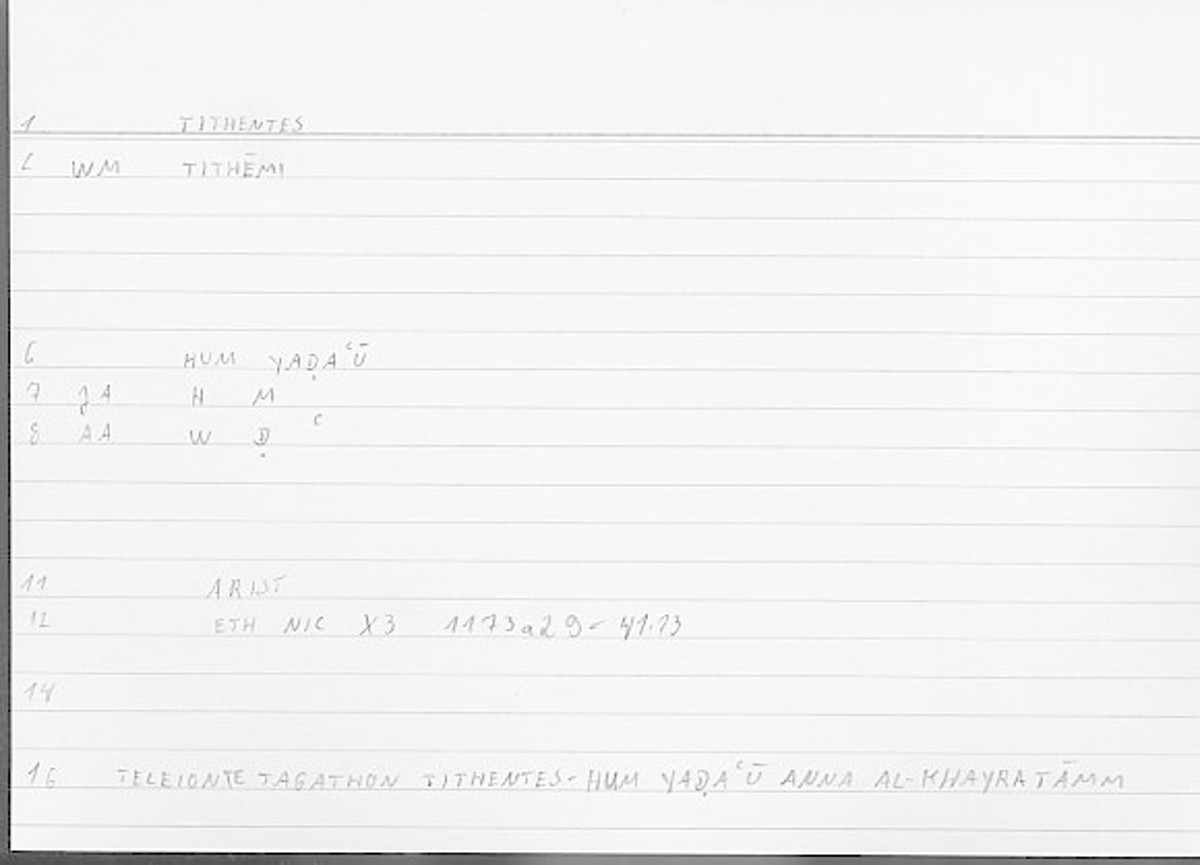 1 TITHENTES
2 WM TITHĒMI
6 HUM YAḌAʿŪ
7 JA H M
8 AA W Ḍ ʿ
11 ARIST
12 ETH NIC X3 1173a29 - 41.13
14
16 TELEIONTE TAGATHON TITHENTES - HUM YAḌAʿŪ ANNA AL-KHAYRA TĀMM